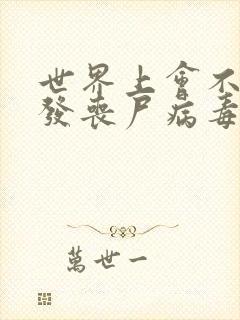 世界上會不
發喪尸病毒
萬世一